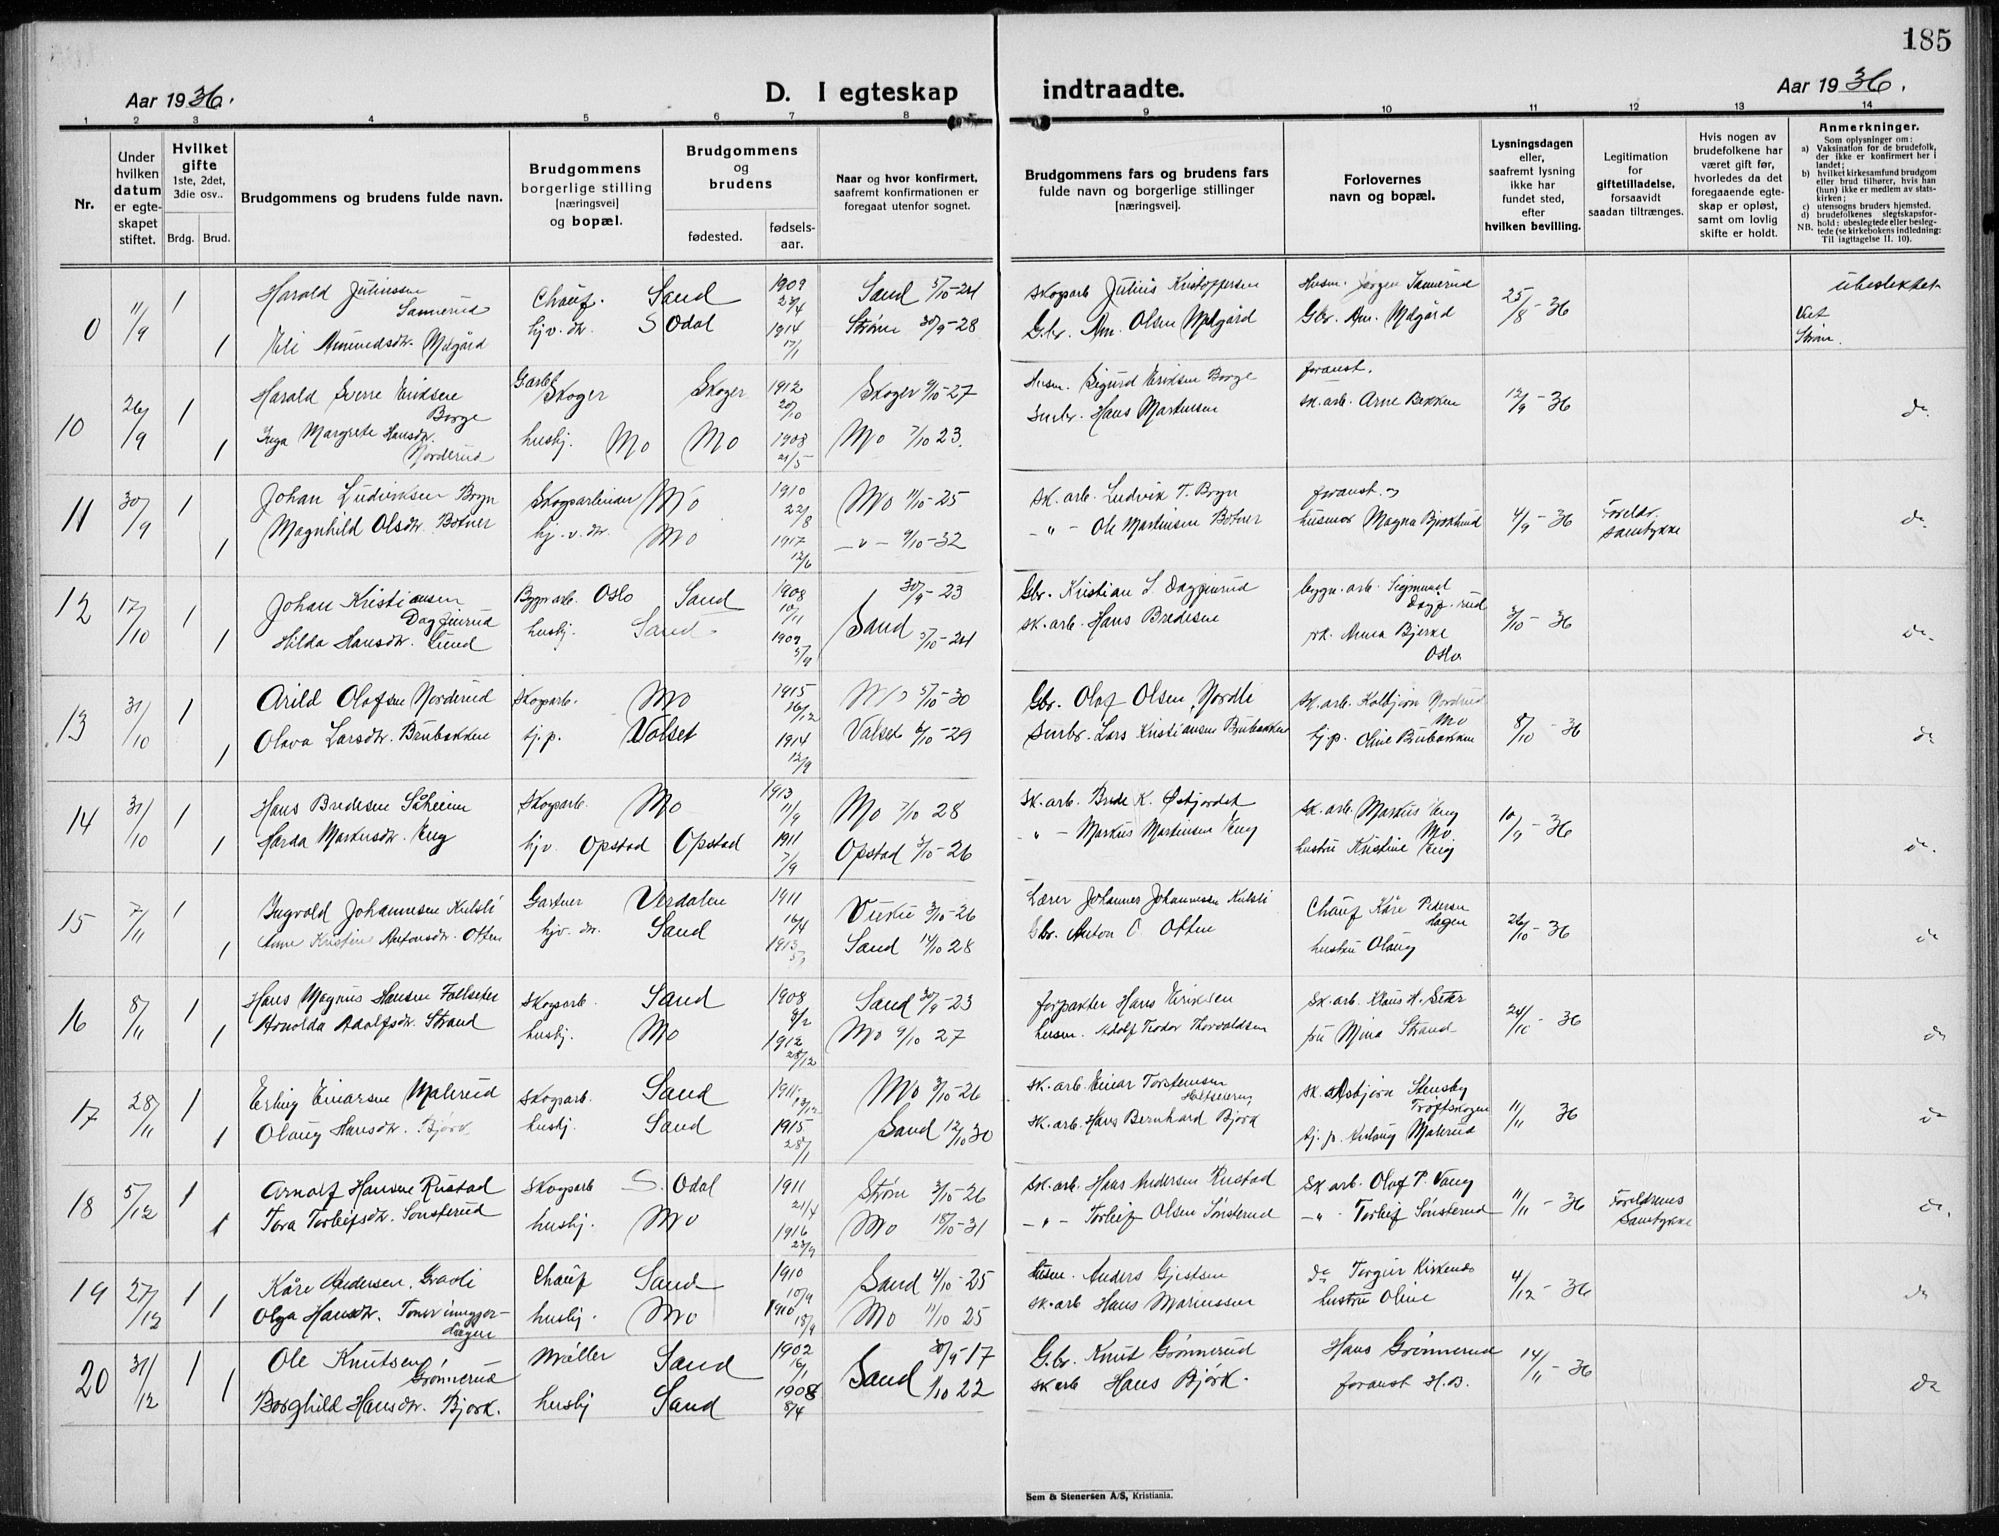 185
Aar 1936.
D. I egteskap indtraadte.
Aar 1936.
1 2 3 4 5 6 7 8 9 10 11 12 13 14
Nr.
Under hvilken datum er egteskapet stiftet.
Hvilket gifte 1ste, 2det, 3die osv..
Brdg. Brud.
Brudgommens og brudens fulde navn.
Brudgommens borgerlige stilling [næringsvei] og bopæl.
Brudgommens og brudens
fødested. fødselsaar.
Naar og hvor konfirmert, saafremt konfirmationen er foregaat utenfor sognet.
Brudgommens fars og brudens fars fulde navn og borgerlige stillinger [næringsvei].
Forlovernes navn og bopæl.
Lysningsdagen eller, saafremt lysning ikke har fundet sted, efter hvilken bevilling.
Legitimation for giftetilladelse, forsaavidt saadan tiltrænges.
Hvis nogen av brudefolkene har været gift før, hvorledes da det foregaaende egteskap er opløst, samt om lovlig skifte er holdt.
Anmerkninger.
Som oplysninger om:
a) Vaksination for de brudefolk, der ikke er konfirmert her i landet;
b) hvilket kirkesamfund brudgom eller brud tilhører, hvis han (hun) ikke er medlem av statskirken;
c) utensogns bruders hjemsted.
d) brudefolkenes slegtskapsforhold: ubeslegtede eller beslegtede (se kirkebokens indledning:
NB. Til iagttagelse II. 10).
0 11/9 1 Harald Juliussen Sannerud Chauf. Sand 1909 23/4 Sand 5/10-24 Skogsarb Julius Kristoffersen Husm. Jørgen Sannerud 25/8-36 ubeslektet
1 Eli Amundsdtr. Mdgård hjv. dtr. S Odal 1914 17/1 Strøm 30/9-28 Gbr. Am. Olsen Mdgård Gbr. Am. Mdgård Strøm.
10 26/9 1 Harald Sverre Eriksen Borge Garbr Skoger Skoger 1912 20/10 Skoger 9/10-27 Husm. Sigurd Eriksen Borge foranst. 12/9-36 do.
1 Inga Margrete Hansdtr. Norderud husbj. Mo Mo 1908 21/5 Mo 7/10 23. Smbr. Hans Martinsen sk.arb. Arne Bekken
11 30/9 1 Johan Ludviksen Bogn Skogsarbeider Mo 1910 22/8 Mo 11/10-25 sk. arb. Ludvik T. Bogn foranst. og 4/9-36 Foreldr. samtykke do.
1 Magnhild Olsdtr. Botner hj. v. dtr. Mo 1917 12/6 -"- 9/10-32 -"- Ole Martinsen Botner husmor Magna Bjorklund
12 17/10 1 Johan Kristiansen Dagfinrud Bygn arb. Oslo Sand 1908 10/11 Sand 30/9-23 Gbr. Kristian S. Dagfinrud bygn. arb. Sigmund Dagf.rud 3/10-36 do.
1 Hilda Hansdtr. Lund husbj. Sand 1909 5/9 5/10-24 sk. arb. Hans Bredesen Anna Bjerke Oslo
13 31/10 1 Arild Olafsen Norderud Skogsarb. Mo 1915 26/12 Mo 5/10-30 Gbr. Olaf Olsen Nordli sk. arb. Kolbjørn Norderud Mo 8/10-36 do
1 Olava Larsdtr. Brubakken hj.p. Valset 1914 12/9 Valset 6/10-29 Smbr. Lars Kristiansen Brubakken hj.p. Oline Brubakken
14 31/10 1 Hans Bredesen Såheim Skogsarb. Mo 1913 11/9 Mo 7/10 28 sk. arb. Brede K. Østfjordet sk. arb. Markus Eng Mo 10/9-36 do.
1 Harda Markusdtr. Eng hjv. Opstad Opstad 1911 7/9 Opstad 3/10-26 -"- Markus Martinsen Eng hustru Kristine Eng
15 7/11 1 Ingvald Johannesen Kulsli Gartner Verdalen 1911 16/4 Vuku 3/10-26 Lærer Johannes Johannesen Kulsli Chauf Kåre Pedersen Hagen 26/10-36 do
1 Anne Kristine Antonsdtr. Otten hjv. dtr. Sand 1913 Sand 14/10 28 Gbr. Anton O. Otten hustru Olaug
16 8/11 1 Hans Magnus Hansen Fallseter Skogsarb. Sand 1908 8/2 Sand 30/9-23 forpakter Hans Eriksen sk. arb. Klaus A. Seter 24/10-36 do
1 Arnolda Adolfsdtr. Strand husbj. Mo 1912 28/12 Mo 9/10 27 husm. Adolf Teodor Thorvaldsen fru Mina Strand
17 28/11 1 Erling Einarsen Malerud Skogsarb. Sand 1911 13/12 Mo 3/10-26 sk. arb. Einar Torstensen sk. Asbjørn Stensby Trøftskogen 11/11 36 do
1 Olaug Hansdtr. Bjørk husbj. Sand 1915 28/1 Sand 12/10 30 sk. arb. Hans Bernhard Bjørk hj. p. Malerud
18 5/12 1 Arnolf Hansen Rustad Skogsarb S. Odal 1911 21/4 Strøm 3/10-26 sk. arb. Hans Andersen Rustad sk arb. Olaf P. Vang 11/11-36 Foreldrenes samtykke do.
1 Tora Torleifsdtr. Sønsterud husbj. Mo 1916 23/9 Mo 18/10-31 -"- Torleif Olsen Sønsterud -"- Torleif Sønsterud
19 27/12 1 Kåre Andersen Gravli Chauf Sand 1910 10/9 Sand 4/10-25 Husm. Anders Gjestsen do Torgeir Kirkenes 4/12-36 do
1 Olga Hansdtr. husbj. Mo 1910 18/9 Mo 11/10 25 sk. arb Hans Marinussen hustru Oline
20 31/12 1 Ole Knutsen Grønnerud Møller Sand 1902 16/1 Sand 30/9-17 G.br. Knut Grønnerud Hans Grønnerud 14/11-36 do
1 Borghild Hansdtr. Bjørk. husbj Sand 1908 8/4 1/10 22 sk arb Hans Bjørk. foranst H.B.
Sem & Stenersen A/S, Kristiania.